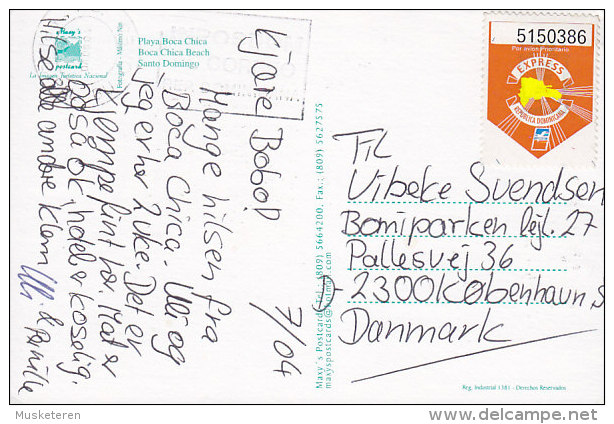 Maxy's
postcard
La Imagen Turística Nacional
Playa Boca Chica
Boca Chica Beach
Santo Domingo
Fotografía - Máximo
5150386
Por avión Prioritario
EXPRESS
REPUBLICA DOMINICANA
Kjære Bobo!
7/04
Mange hilsen fra
Boca Chica. Ulli og
jeg er her 2 uke. Det er
kjempe fint her. Mat er
også OK, hotel er koselig.
Hilse alle andre Klem
& familie
Til
Vibeke Svendsen
Bomiparken lejl. 27
Pallesvej 36
2300 København S
Danmark
Maxy's Postcard, Tel.: (809) 5664200, Fax.: (809) 5627575
maxyspostcards@hotmail.com
Reg. Industrial 1381 - Derechos Reservados
Musketeren
delcampe.net